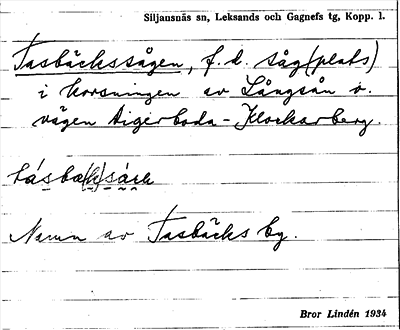 Siljansnäs sn, Leksands och Gagnefs tg, Kopp. l.
Tasbäckssågen, f.d. såg(plats)
i korsningen av Långsån o.
vägen Aigerboda-Klockarberg.
Namn av Tasbäcks by.
Bror Lindén 1934